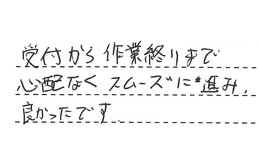 受付から作業終りまで
心配なくスムーズに進み、
良かったです